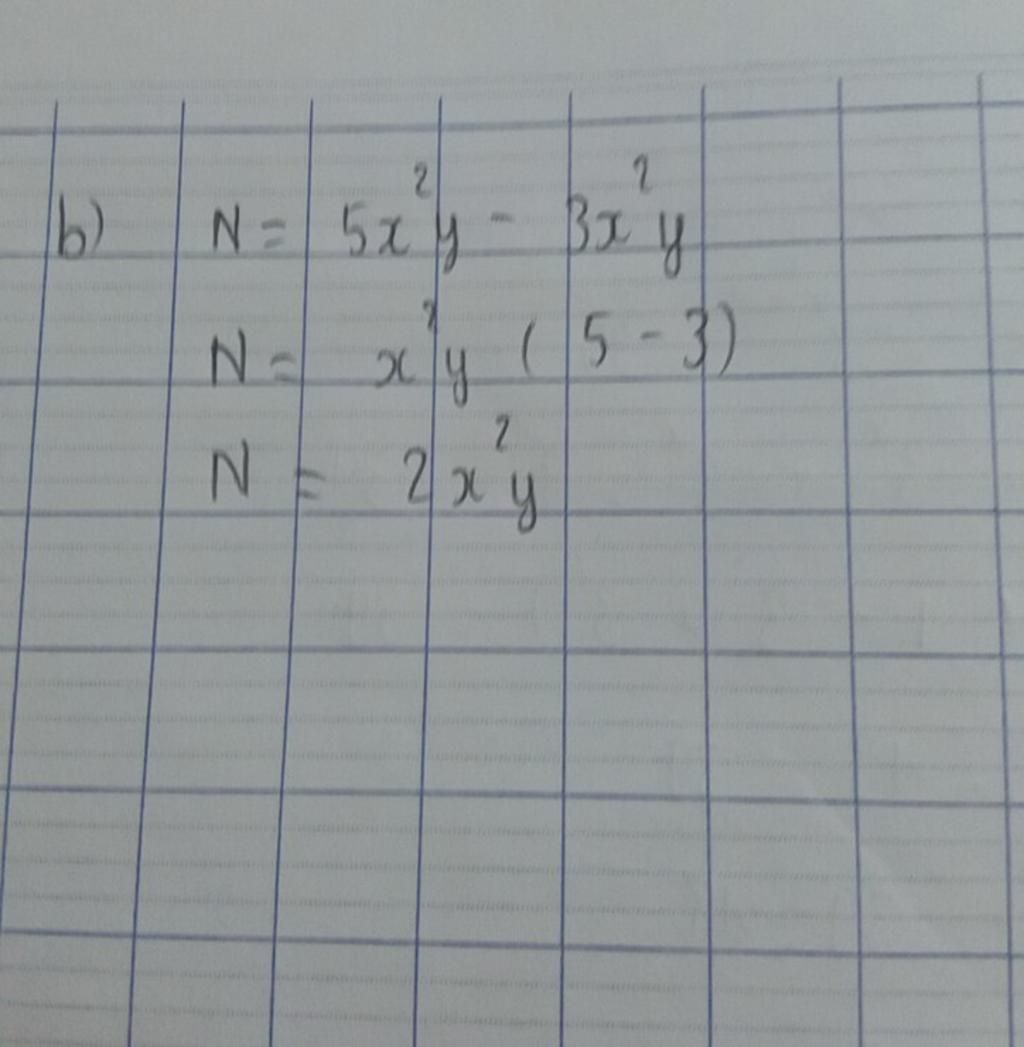 b) N = 5x²y - 3x²y
N = x²y ( 5 - 3)
N = 2x²y